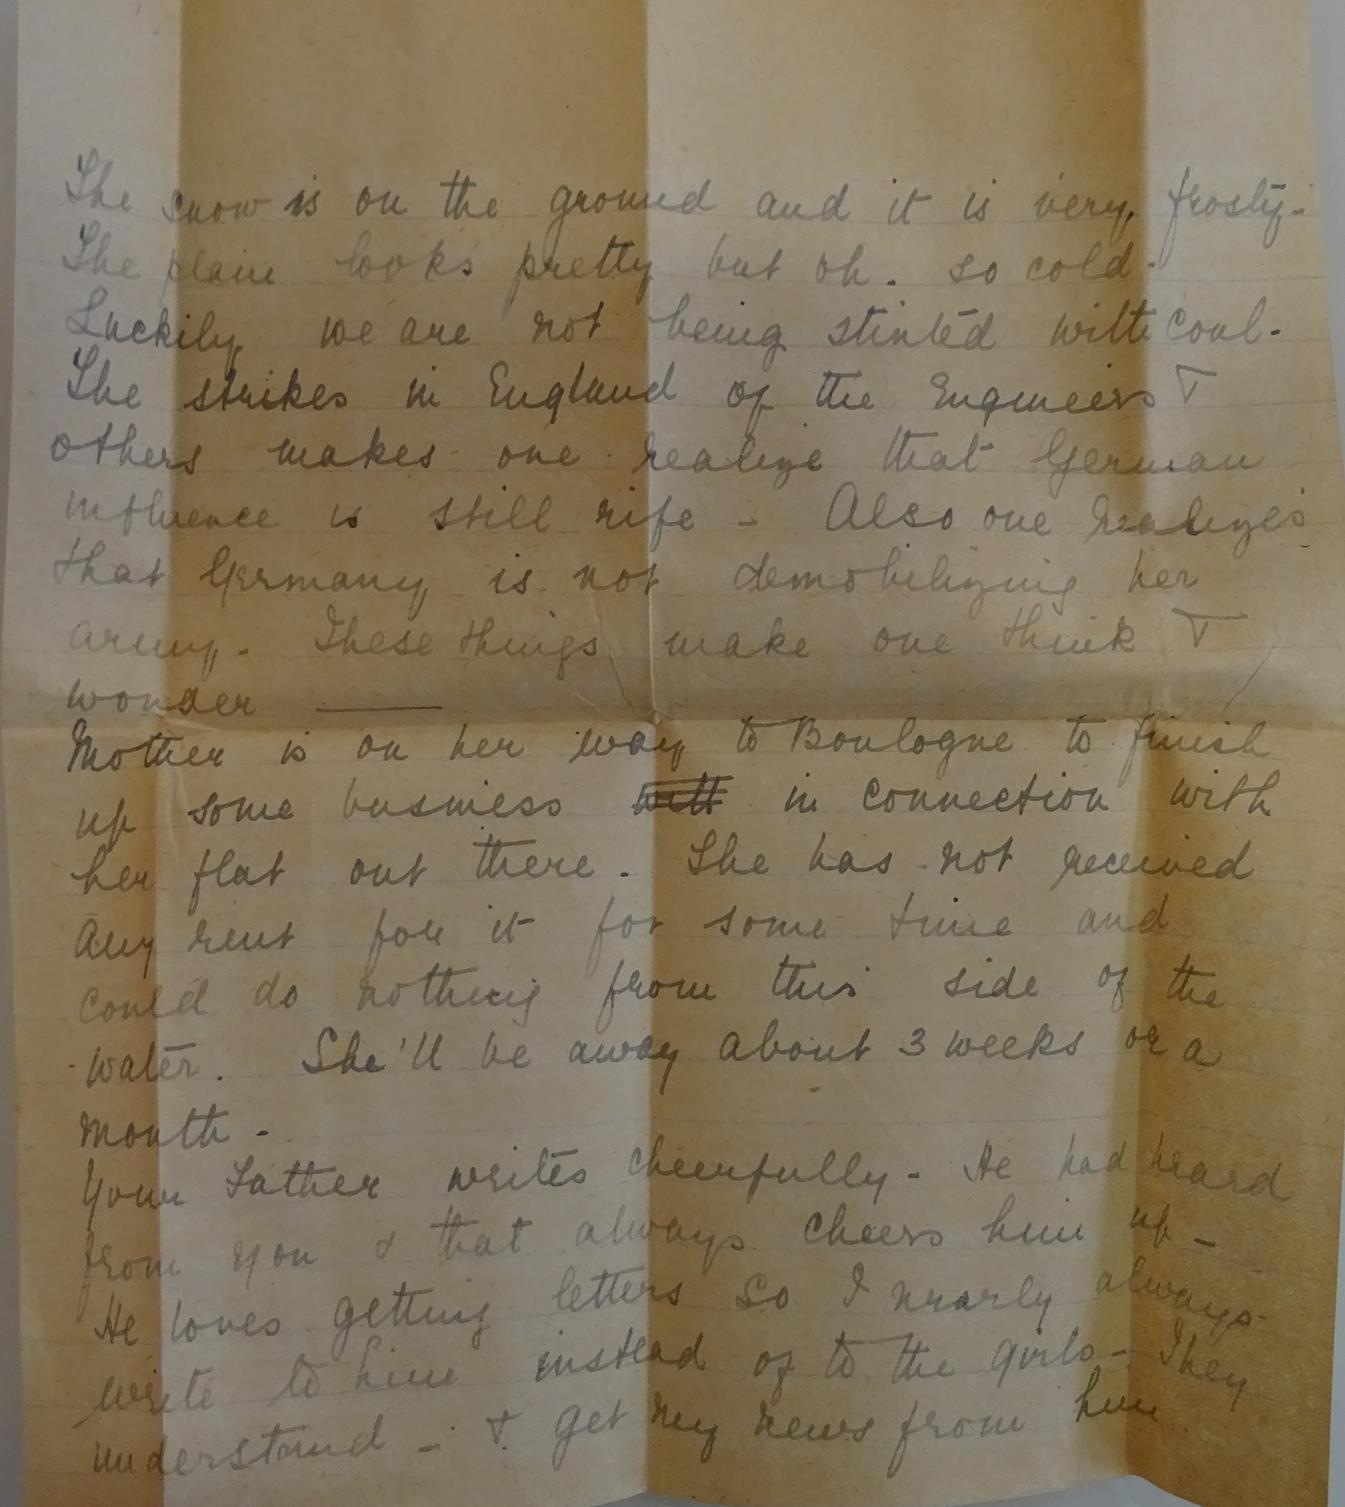 The snow is on the ground and it is very frosty -
The plain looks pretty but oh. so cold -
Luckily we are not being stinted with coal -
The strikes in England of the Engineers &
others makes one realize that German
influence is still rife - Also one realizes
that Germany is not demobilizing her
army. - These things make one think &
wonder ———
Mother is on her way to Boulogne to finish
up some business with in connection with
her flat out there. She has not received
any rent for it for some time and
could do nothing from this side of the
water. She'll be away about 3 weeks or a
month -
Your Father writes cheerfully - He had heard
from you & that always cheers him up -
He loves getting letters so I nearly always
write to him instead of to the girls - They
understand - & get my news from him